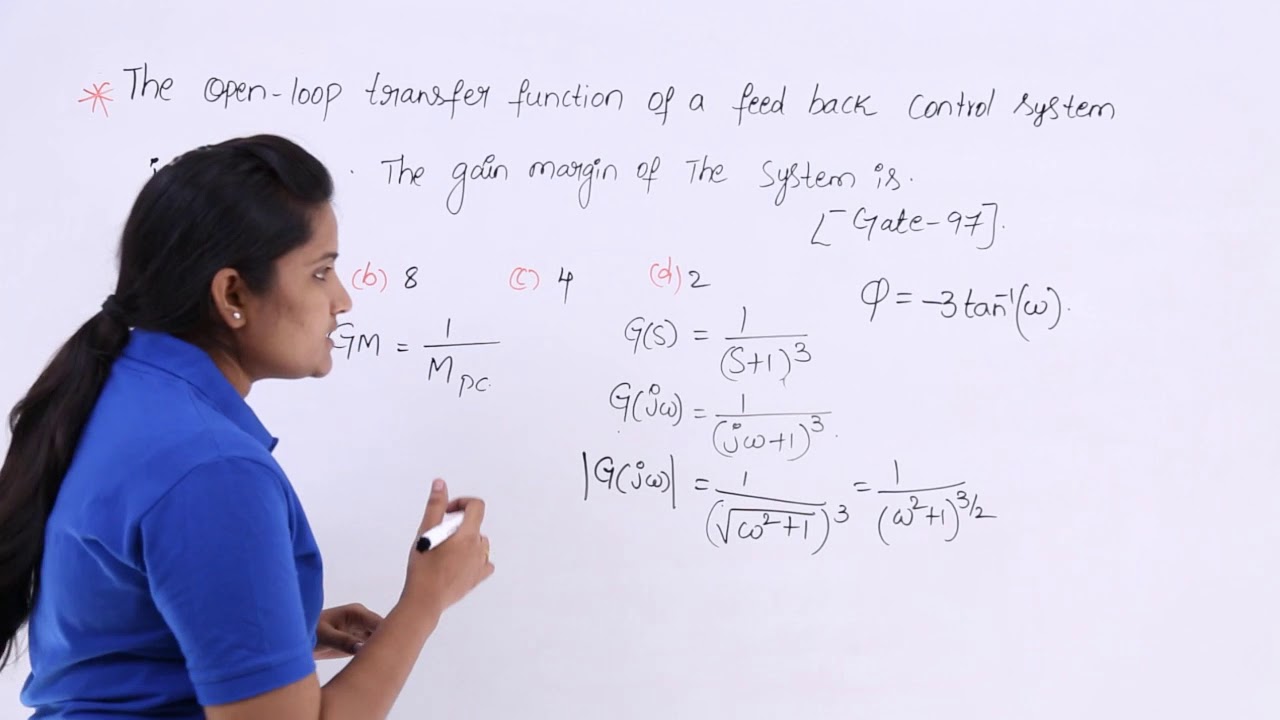 * The open-loop transfer function of a feed back control system
. The gain margin of The system is.
[Gate-97].
(b) 8 (c) 4 (d) 2
φ = -3 tan⁻¹(ω).
GM = 1/M_pc
G(s) = 1/(s+1)³
G(jω) = 1/(jω+1)³.
|G(jω)| = 1/(√(ω²+1))³ = 1/(ω²+1)^3/2